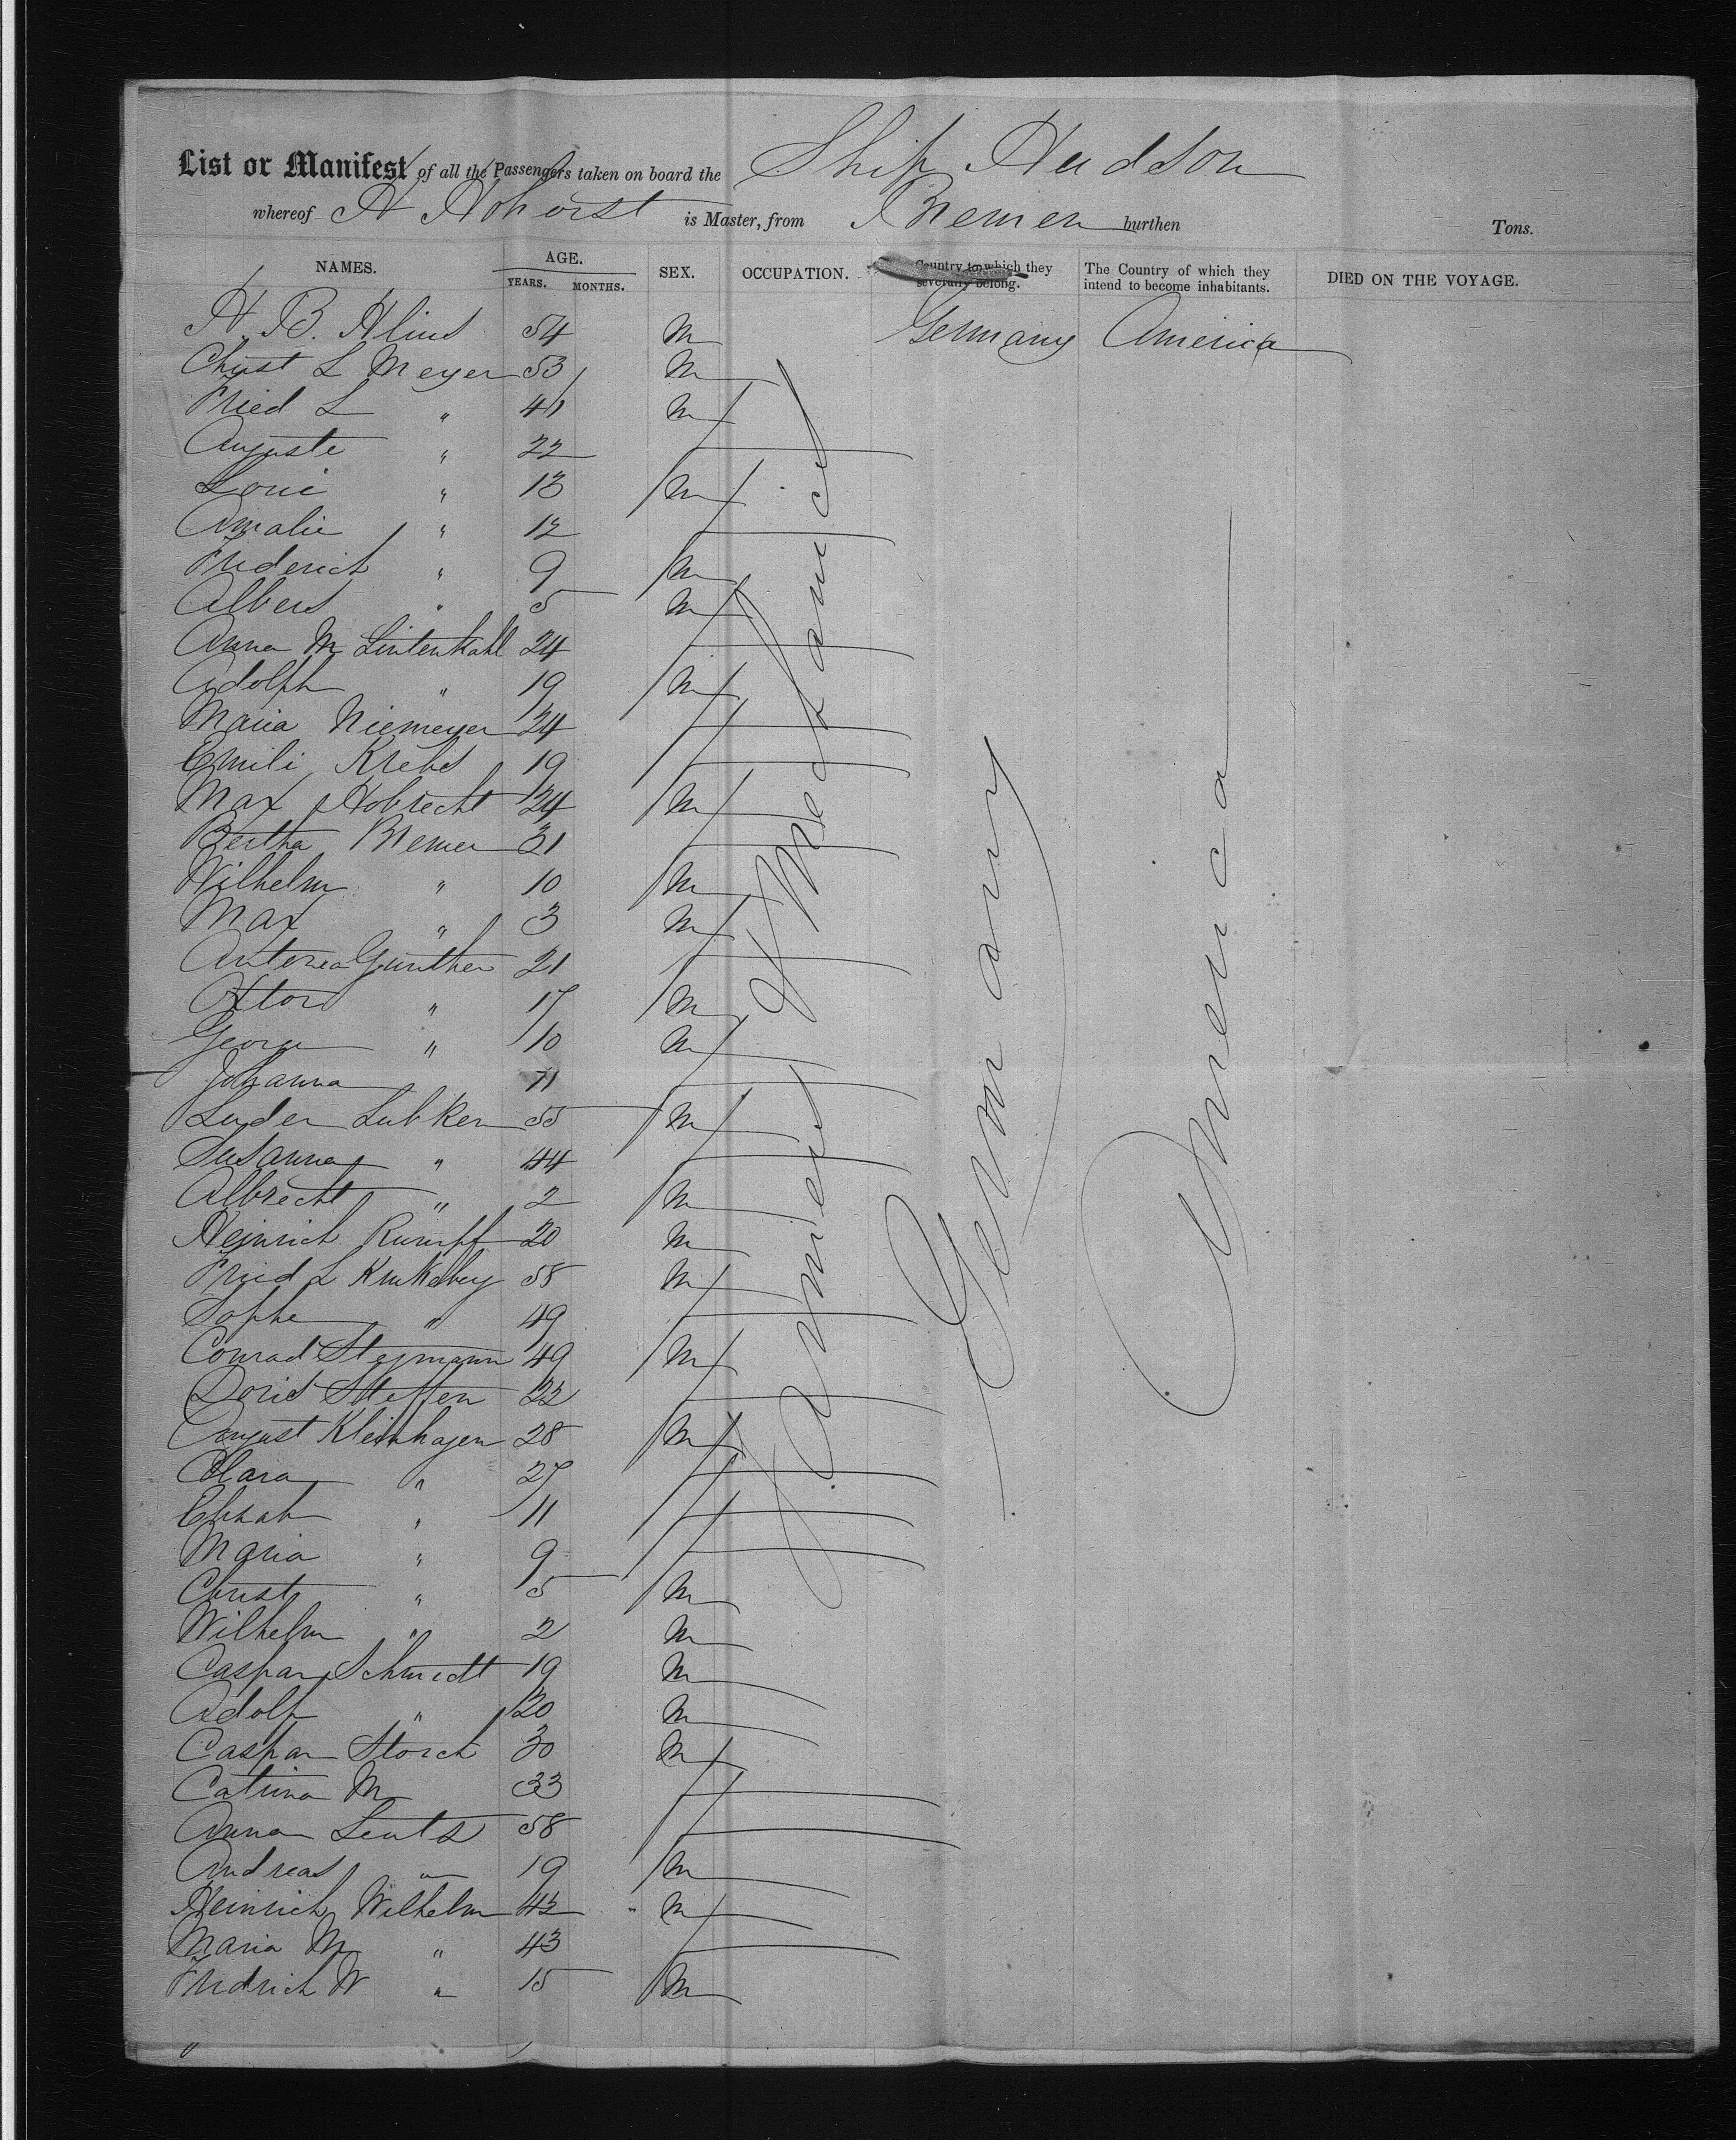 List or Manifest of all the Passengers taken on board the Ship Hudson
whereof is Master, from Bremen burthen Tons.
NAMES. AGE. YEARS. MONTHS. SEX. OCCUPATION. Country to which they severally belong. The Country of which they intend to become inhabitants. DIED ON THE VOYAGE.
H. B. 54 M Germany America
Christ L Meyer 53 M
Fried L " 41 M
Auguste " 22 F
Loui " 13 M
Amalie " 12 F
Frederich " 9 M
Albert " 5 M
Anna M Lintenkahl 24 F
Adolph " 19 M
Maria Niemeyer 24 F
Emili Krebs 19 F
Max Hobrecht 24 M
Bertha Bremer 31 F
Wilhelm " 10 M
Max " 3 M
Antonia Gunther 21 F
Ottor " 17 M
George " 10 M
Johanna 71 F
Luder Lubken 55 M
Susanna " 44 F
Albrecht " 2 M
Heinrich Rumpff 20 M
Fried L 58 M
Sophe " 49 F
Conrad Stegmann 49 M
Doris Steffen 22 F
August Kleinhagen 28 M
Clara " 27 F
" 11 F
Maria " 9 F
Christ " 5 M
Wilhelm " 2 M
Caspar Schmidt 19 M
Adolf " 20 M
Caspar Storch 30 M
Catrina M 33 F
Anna Lentz 58 F
Andreas " 19 M
Heinrich Wilhelm 42 " M
Maria M " 43 F
Fridrich W " 15 M
Farmers & Mechanics
Germany
America